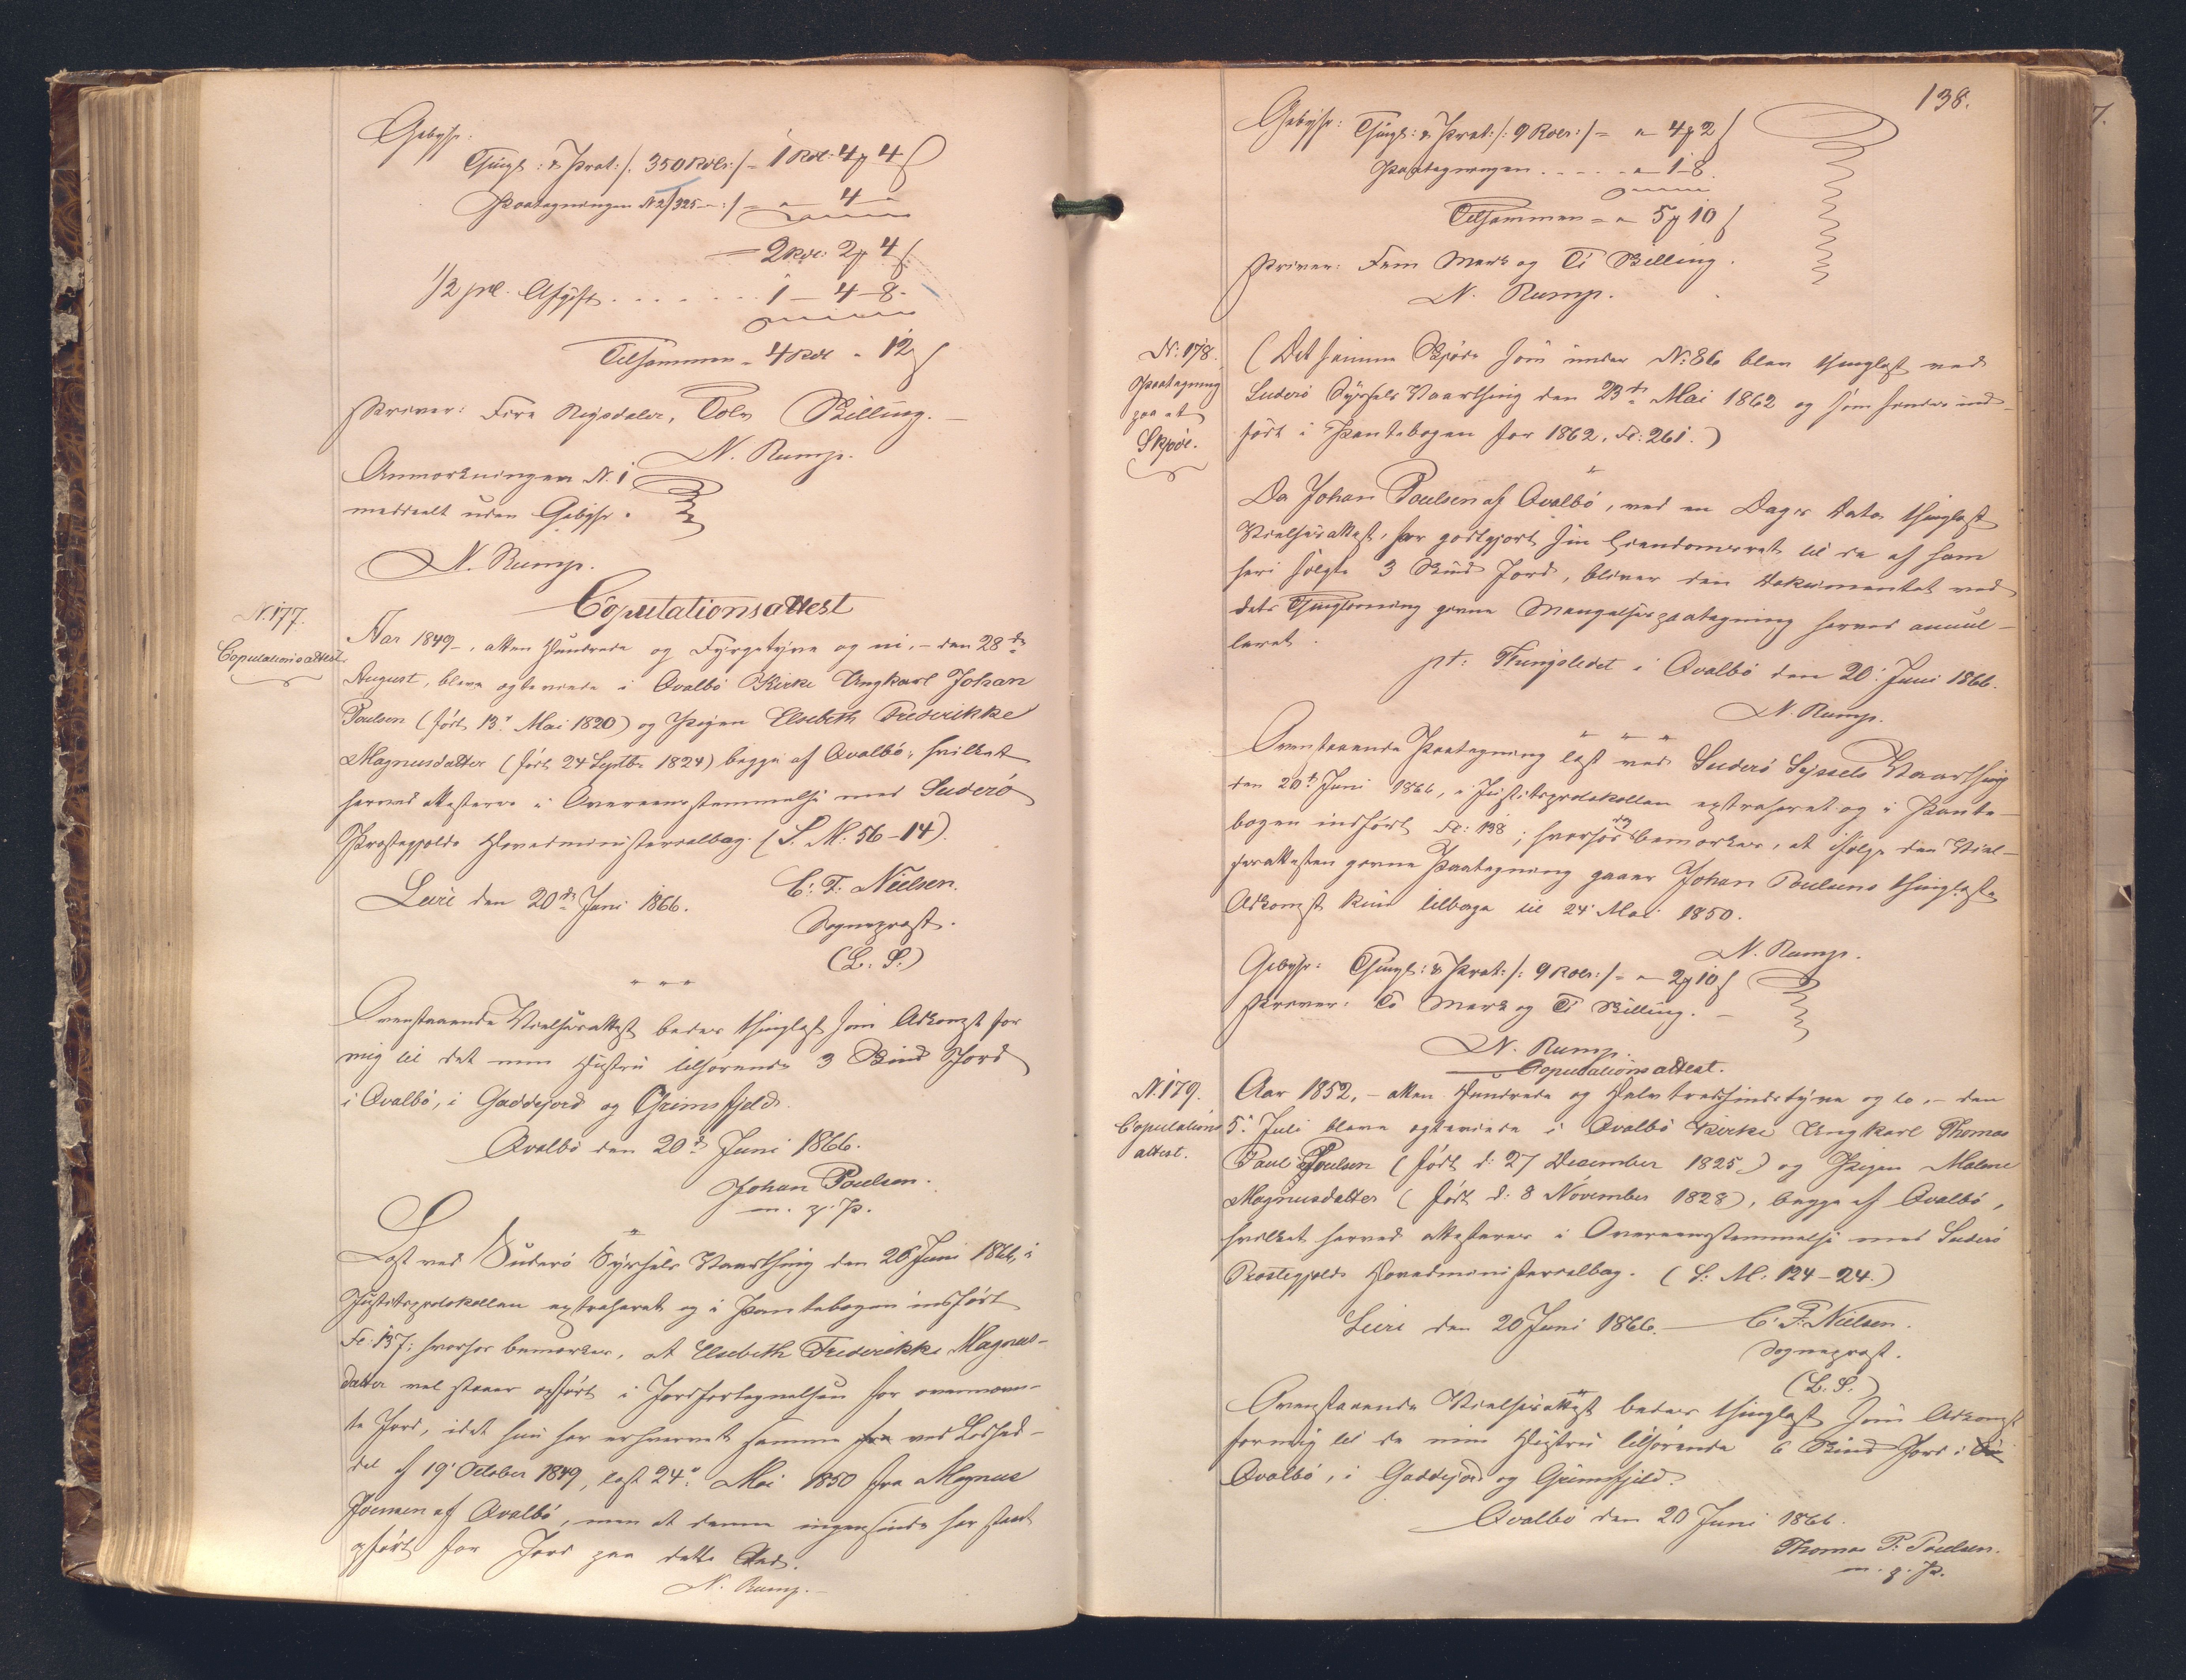 Gebyhr:
Thingl: & Prot: /: 350 Rdlr: / = 1 Rdl: 4 ꝳ 4 ß
Paategningen N2/325 — : / = " 4 —
= 2 Rdl: 2 ꝳ 4 ß
1/2 pCt. Afgift . . . . . . 1 — 4 — 8.
Tilsammen = 4 Rdl " 12 ß
skriver: Fire Rigsdaler, Tolv Skilling. —
N. Rump.
Anmærkningen N. 1
meddeelt uden Gebyhr.
N. Rump.
N. 177.
Copulationsattest
Copulationsattest
Aar 1849 —, atten Hundrede og Fyrgetyve og ni, — den 28de
August, bleve ægteviede i Qvalbö Kirke Ungkarl Johan
Poulsen (født 13. Mai 1820) og Pigen Elsebeth Frederikke
Magnusdatter (født 24 Septbr 1824) begge af Qvalbö, hvilket
herved attesteres i Overeensstemmelse med Suderö
Præstegjelds Hovedministerialbog. (S. M: 56 — 14).
Qveri den 20de Juni 1866.
C: F: Nielsen.
Sogneprest.
(L. S.)
Ovenstaaende Vielsesattest bedes thinglæst som Adkomst for
mig til det min Hustru tilhørende 3 Skind Jord
i Qvalbö, i Gaddejord og Grimsfjeld.
Qvalbö den 20de Juni 1866.
Johan Poulsen.
m. p. P.
Læst ved Suderö Syssels Vaarthing den 20 Juni 1866, i
Justitsprotokollen extraheret og i Pantebogen indført
Fo. 137; hvorhos bemærkes, at Elsebeth Frederikke Magnus-
datter vel staaer opført i Jordfortegnelsen for ovennævn-
te Jord, idet hun har erhvervet samme fra ved Lodsed-
del af 19. October 1849, læst 24. Mai 1850 fra Magnus
Joensen af Qvalbö, men at denne ingensinde har staaet
opført for Jord paa dette Sted.
N. Rump. —
138.
Gebyhr: Thingl: & Prot: /: 9 Rdlr: / = " 4 ꝳ 2 ß
Paategningen . . . . . " — 1 — 8.
Tilsammen = " 5 ꝳ 10 ß
skriver: Fem Mark og Ti Skilling.
N. Rump.
N: 178.
Paategning
paa et
Skjöde.
(Det samme Skjøde som under N: 86 blev thinglæst ved
Suderö Syssels Vaarthing den 23de Mai 1862 og som findes ind-
ført i Pantebogen for 1862. Fo: 261.)
Da Johan Poulsen af Qvalbö, ved en Dags Dato thinglæst
Vielsesattest, har godtgjort sin Eiendomsret til de af ham
heri solgte 3 Skind Jord, bliver den Dokumentet ved
dets Thinglæsning givne Mangelspaategning herved annul-
leret.
pt: Thingstedet i Qvalbö den 20. Juni 1866.
N. Rump.
Ovenstaaende Paategning læst ved Suderö Syssels Vaarthing
den 20de Juni 1866, i Justitsprotokollen extraheret og i Pante-
bogen indført Fo: 138; hvorhos bemærkes, at ifølge den Viel-
sesattesten givne Paategning gaaer Johan Poulsens thinglæste
Adkomst kun tilbage til 24. Mai 1850.
N. Rump.
Gebyhr: Thingl: & Prot: /: 9 Rdlr: / = " 2 ꝳ 10 ß
skriver: To Mark og Ti Skilling. —
N. Rump.
Copulationsattest.
N. 179.
Copulations
attest.
Aar 1852, — atten Hundrede og Halvtredsindstyve og to, — den
5. Juli bleve ægteviede i Qvalbö Kirke Ungkarl Thomas
Paul Poulsen (født d: 27 December 1825) og Pigen Malene
Magnusdatter (født d: 8 November 1828), begge af Qvalbö,
hvilket herved attesteres i Overeensstemmelse med Suderö
Præstegjelds Hovedministerialbog. (S: M. 124 — 24.)
Qveri den 20 Juni 1866. — C. F. Nielsen.
Sogneprest.
(L. S.)
Ovenstaaende Vielsesattest bedes thinglæst som Adkomst
for mig til de min Hustru tilhørende 6 Skind Jord i
Qvalbö, i Gaddejord og Grimsfjeld.
Qvalbö den 20 Juni 1866.
Thomas P. Poulsen.
m. p. P.